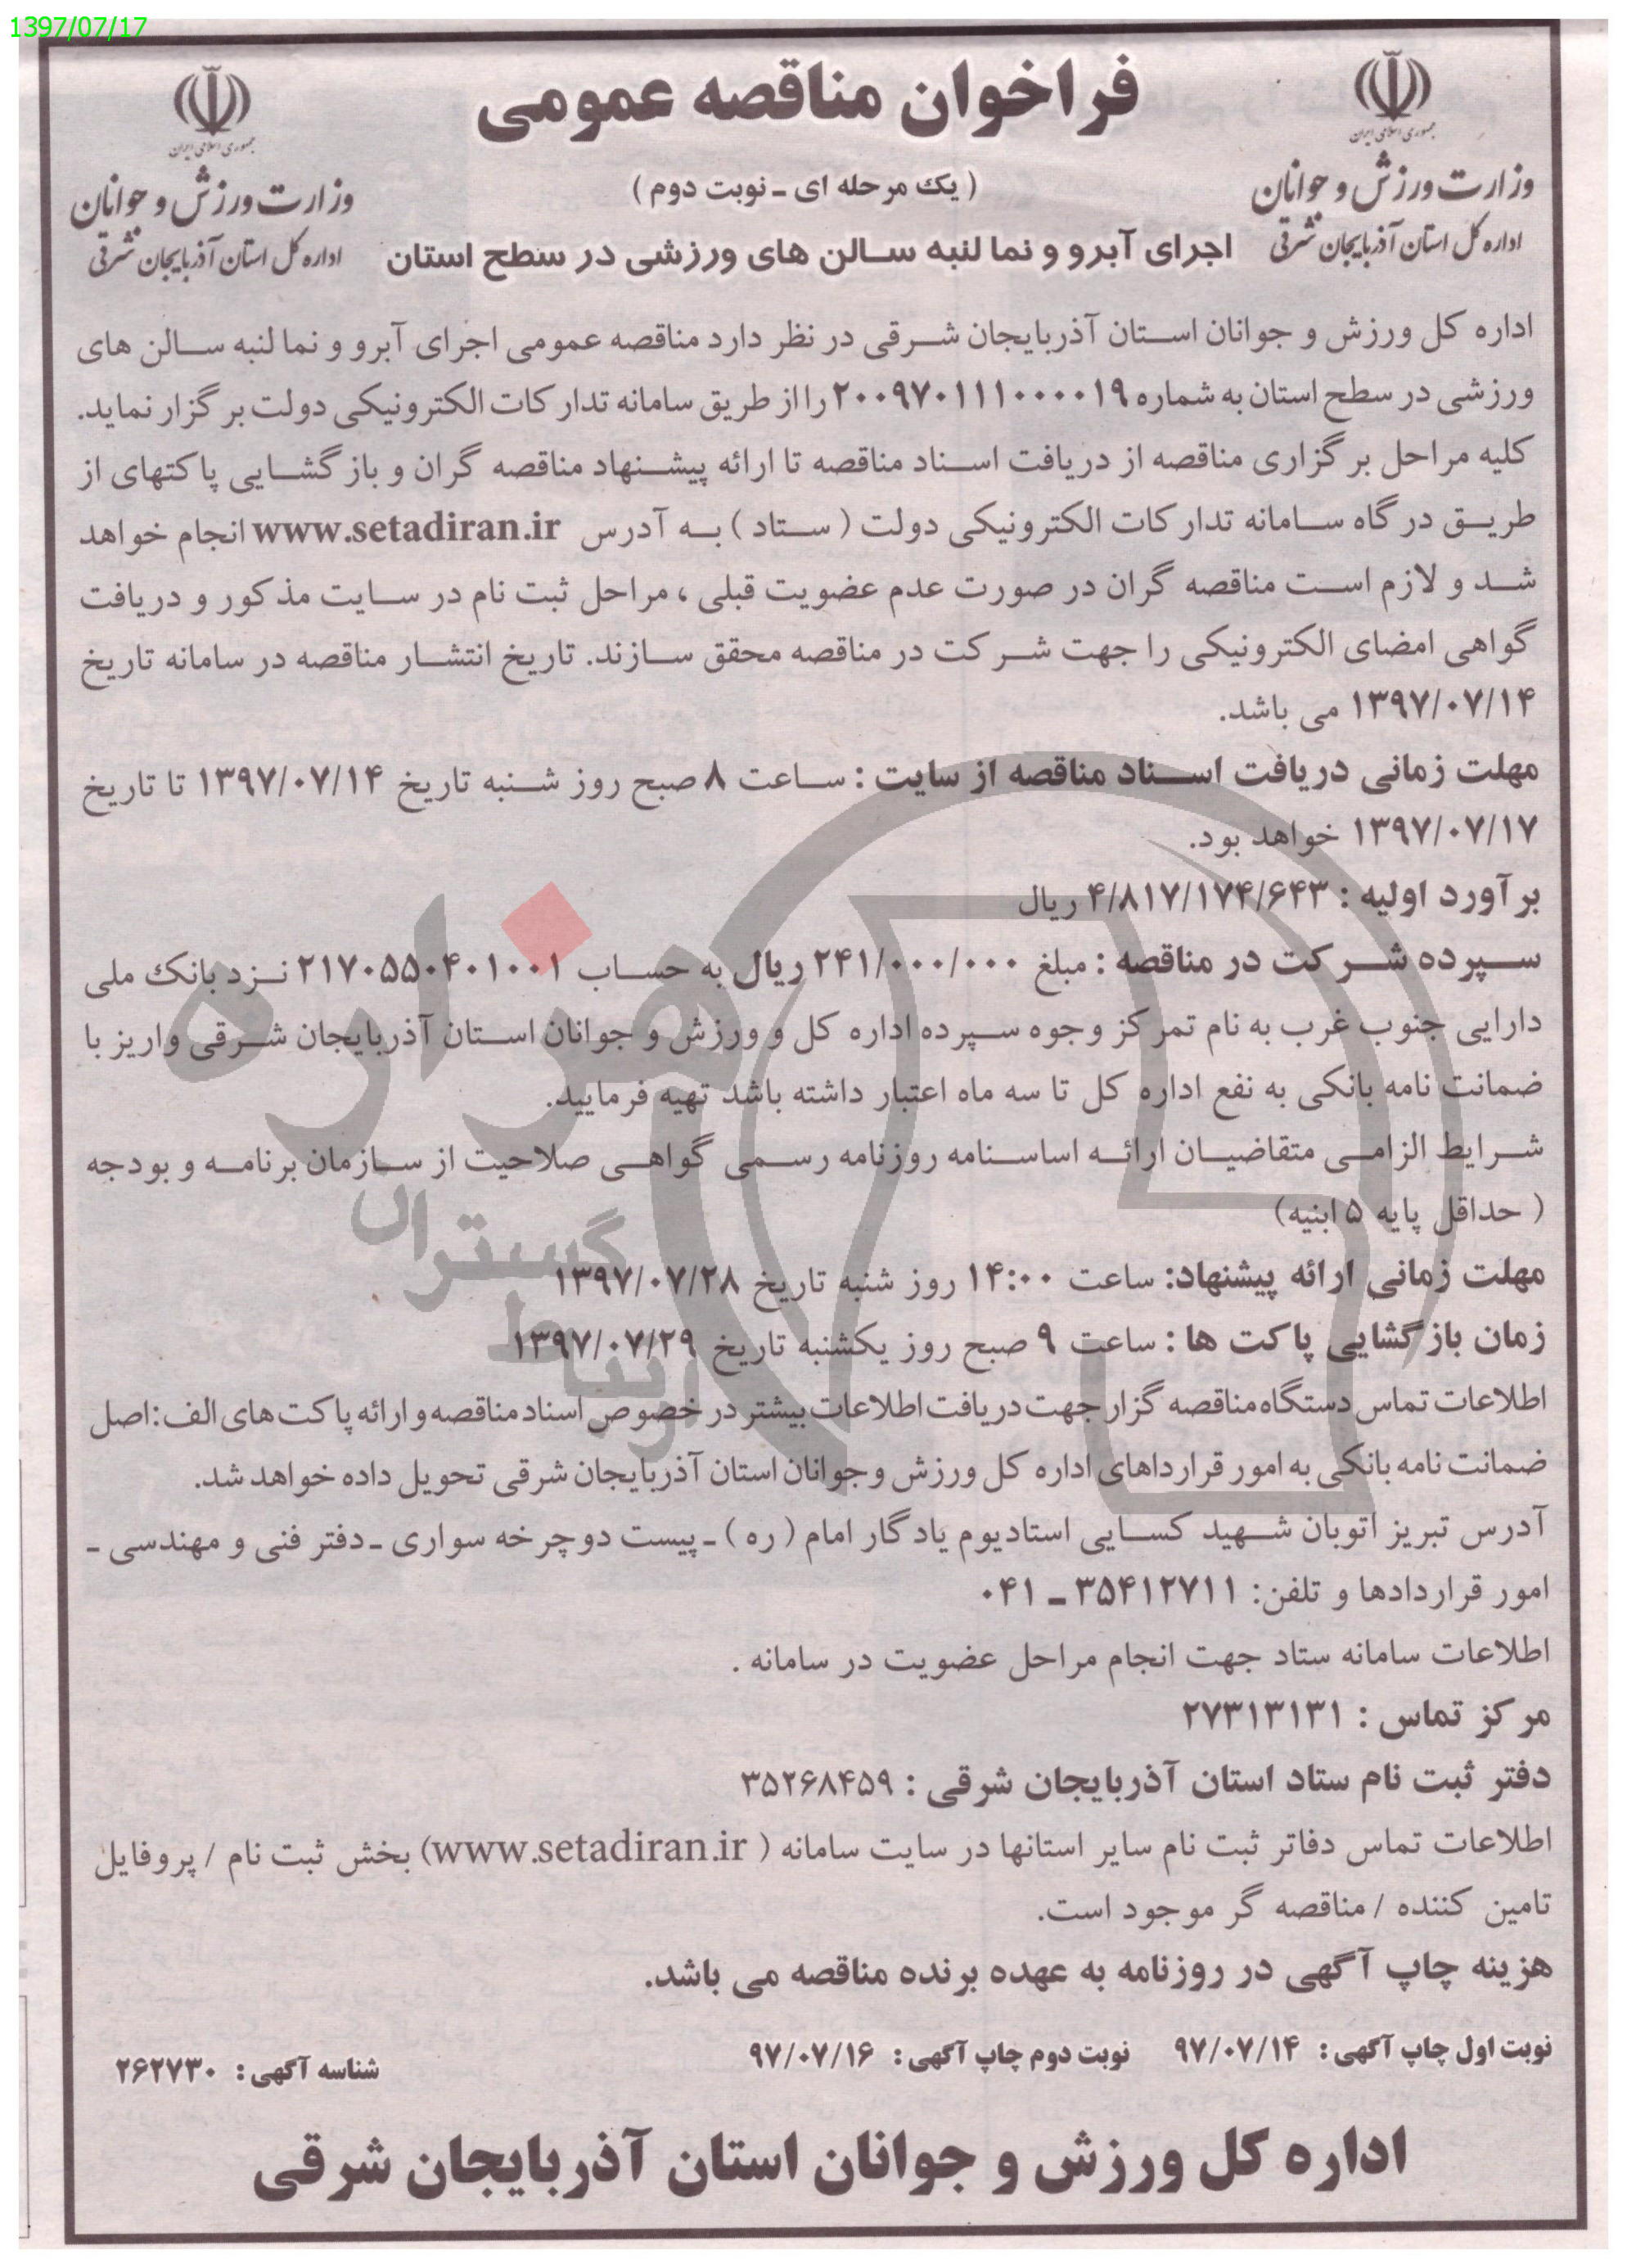 1397/07/17
جمهوری اسلامی ایران
وزارت ورزش و جوانان
اداره کل استان آذربایجان شرقی
فراخوان مناقصه عمومی
( یک مرحله ای ـ نوبت دوم )
اجرای آبرو و نما لنبه سالن های ورزشی در سطح استان
جمهوری اسلامی ایران
وزارت ورزش و جوانان
اداره کل استان آذربایجان شرقی
اداره کل ورزش و جوانان استان آذربایجان شرقی در نظر دارد مناقصه عمومی اجرای آبرو و نما لنبه سالن های
ورزشی در سطح استان به شماره ۲۰۰۹۷۰۱۱۱۰۰۰۰۱۹ را از طریق سامانه تدارکات الکترونیکی دولت برگزار نماید.
کلیه مراحل برگزاری مناقصه از دریافت اسناد مناقصه تا ارائه پیشنهاد مناقصه گران و بازگشایی پاکتهای از
طریق درگاه سامانه تدارکات الکترونیکی دولت ( ستاد ) به آدرس www.setadiran.ir انجام خواهد
شد و لازم است مناقصه گران در صورت عدم عضویت قبلی ، مراحل ثبت نام در سایت مذکور و دریافت
گواهی امضای الکترونیکی را جهت شرکت در مناقصه محقق سازند. تاریخ انتشار مناقصه در سامانه تاریخ
۱۳۹۷/۰۷/۱۴ می باشد.
مهلت زمانی دریافت اسناد مناقصه از سایت : ساعت ۸ صبح روز شنبه تاریخ ۱۳۹۷/۰۷/۱۴ تا تاریخ
۱۳۹۷/۰۷/۱۷ خواهد بود.
برآورد اولیه : ۴/۸۱۷/۱۷۴/۶۴۳ ریال
سپرده شرکت در مناقصه : مبلغ ۲۴۱/۰۰۰/۰۰۰ ریال به حساب ۲۱۷۰۵۵۰۴۰۱۰۰۱ نزد بانک ملی
دارایی جنوب غرب به نام تمرکز وجوه سپرده اداره کل و ورزش و جوانان استان آذربایجان شرقی واریز با
ضمانت نامه بانکی به نفع اداره کل تا سه ماه اعتبار داشته باشد تهیه فرمایید.
شرایط الزامی متقاضیان ارائه اساسنامه روزنامه رسمی گواهی صلاحیت از سازمان برنامه و بودجه
( حداقل پایه ۵ ابنیه)
مهلت زمانی ارائه پیشنهاد: ساعت ۱۴:۰۰ روز شنبه تاریخ ۱۳۹۷/۰۷/۲۸
زمان بازگشایی پاکت ها : ساعت ۹ صبح روز یکشنبه تاریخ ۱۳۹۷/۰۷/۲۹
اطلاعات تماس دستگاه مناقصه گزار جهت دریافت اطلاعات بیشتر در خصوص اسناد مناقصه و ارائه پاکت های الف: اصل
ضمانت نامه بانکی به امور قراردادهای اداره کل ورزش و جوانان استان آذربایجان شرقی تحویل داده خواهد شد.
آدرس تبریز اتوبان شهید کسایی استادیوم یادگار امام ( ره ) ـ پیست دوچرخه سواری ـ دفتر فنی و مهندسی ـ
امور قراردادها و تلفن: ۳۵۴۱۲۷۱۱ ـ ۰۴۱
اطلاعات سامانه ستاد جهت انجام مراحل عضویت در سامانه .
مرکز تماس : ۲۷۳۱۳۱۳۱
دفتر ثبت نام ستاد استان آذربایجان شرقی : ۳۵۲۶۸۴۵۹
اطلاعات تماس دفاتر ثبت نام سایر استانها در سایت سامانه ( www.setadiran.ir) بخش ثبت نام / پروفایل
تامین کننده / مناقصه گر موجود است.
هزینه چاپ آگهی در روزنامه به عهده برنده مناقصه می باشد.
نوبت اول چاپ آگهی : ۹۷/۰۷/۱۴ نوبت دوم چاپ آگهی : ۹۷/۰۷/۱۶ شناسه آگهی : ۲۶۲۷۳۰
اداره کل ورزش و جوانان استان آذربایجان شرقی
هزاره
گستران
ارتباط